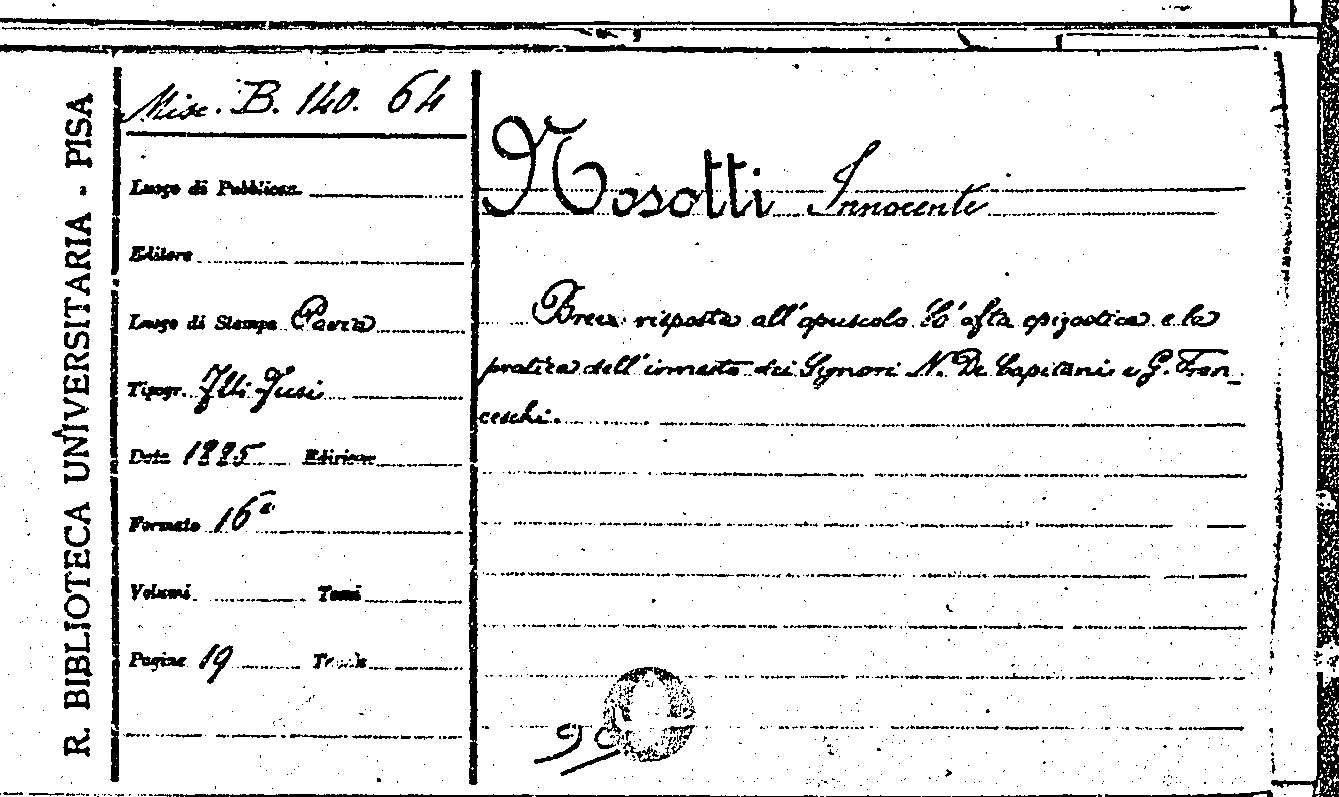 R. BIBLIOTECA UNIVERSITARIA - PISA
Misc. B. 140. 64
Luogo di Pubblicaz.
Editore
Luogo di Stampa Pavia
Tipogr. Flli Fusi
Data 1885 Edizione
Formato 16°
Volumi Tomi
Pagine 19 Tavole
Nosotti Innocente
Breve risposta all'opuscolo L'afta epizootica e la
pratica dell'innesto dei Signori N. De Capitani e G. Fran_
ceschi.